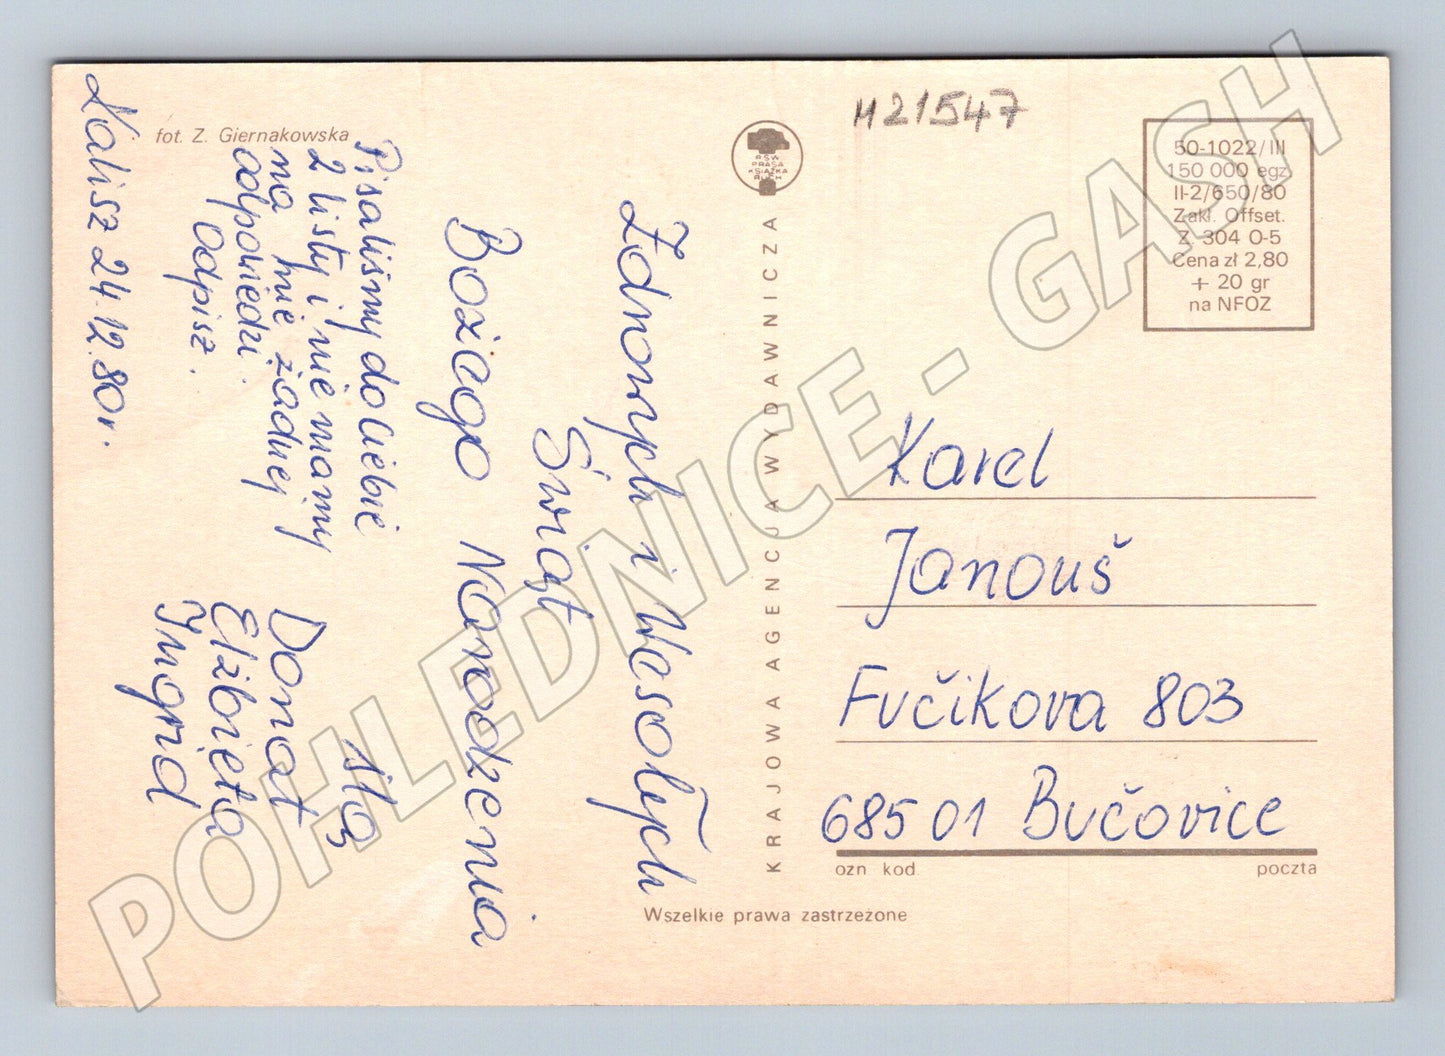 fot. Z. Giernakowska
Zdrowych i Wesołych
Świąt
Bożego Narodzenia
ślą
Donat
Elżbieta
Ingrid
Pisaliśmy do Ciebie
2 listy i nie mamy
na nie żadnej
odpowiedzi.
odpisz.
Kalisz 24.12.80r.
RSW
PRASA
KSIĄŻKA
RUCH
KRAJOWA AGENCJA WYDAWNICZA
M21547
50-1022/III
150 000 egz.
II-2/650/80
Zakł. Offset.
Z. 304 O-5
Cena zł 2,80
+ 20 gr
na NFOZ
Karel
Janouš
Fučikova 803
68501 Bučovice
ozn kod poczta
Wszelkie prawa zastrzeżone
POHLEDNICE - GASH